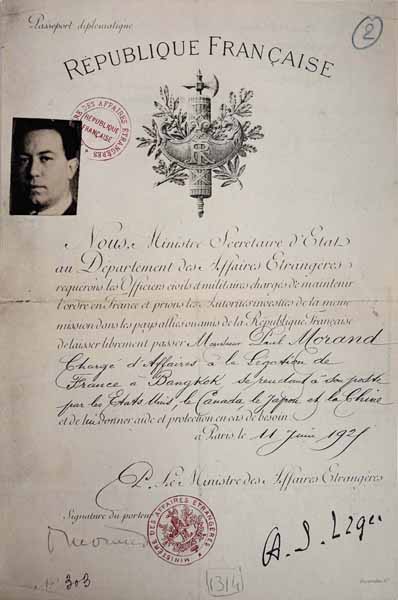 Passeport diplomatique
2
RÉPUBLIQUE FRANÇAISE
DES AFFAIRES ETRANGÈRES
RÉPUBLIQUE FRANÇAISE
RF
Nous, Ministre Secrétaire d'Etat
au Département des Affaires Etrangères
requérons les Officiers civils et militaires chargés de maintenir
l'ordre en France et prions les Autorités investies de la même
mission dans les pays alliés ou amis de la République Française
de laisser librement passer Monsieur Paul Morand
Chargé d'Affaires à la Légation de
France à Bangkok se rendant à son poste
par les Etats Unis, le Canada le Japon et la Chine
et de lui donner aide et protection en cas de besoin.
à Paris, le 11 Juin 1925
P. Le Ministre des Affaires Etrangères
Signature du porteur
MINISTÈRE DES AFFAIRES ETRANGÈRES
Morand
A. S. Leger
N° 303
1314